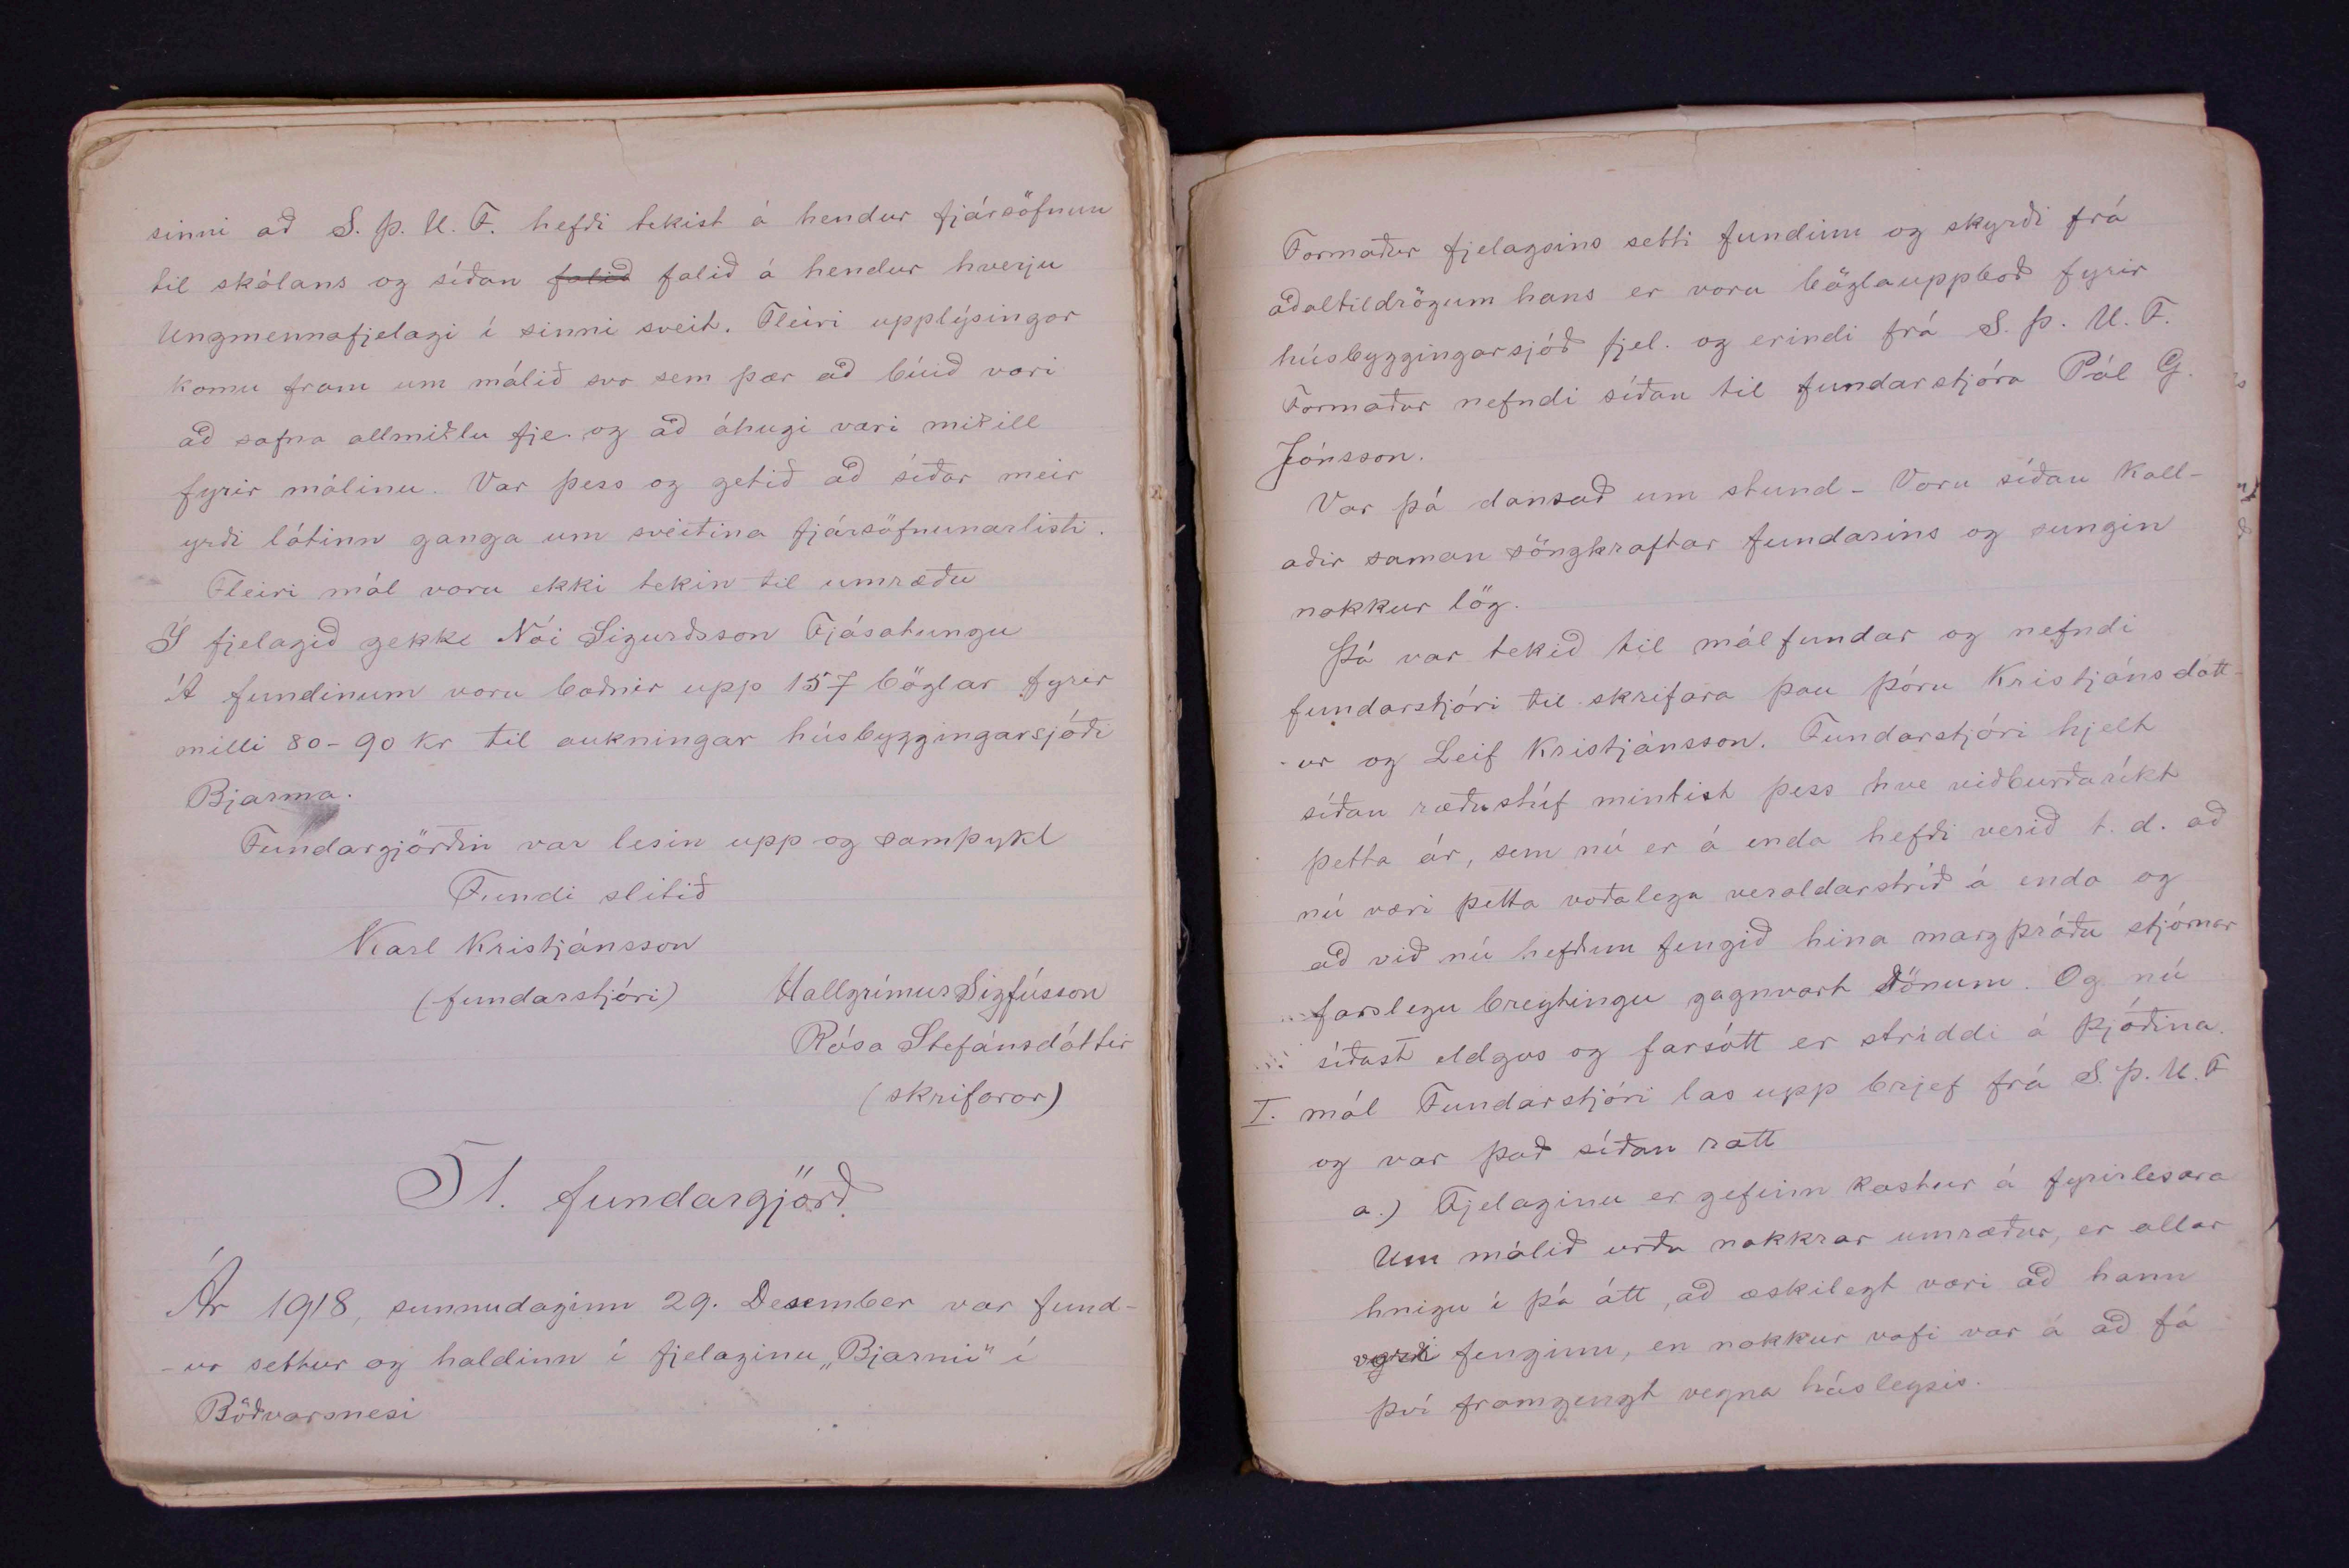 sinni að S. Þ. U. F. hefði tekist á hendur fjársöfnun
til skólans og síðan falið falið á hendur hverju
Ungmennafjelagi í sinni sveit. Fleiri upplýsingar
komu fram um málið svo sem þær að búið væri
að safna allmiklu fje. og að áhugi væri mikill
fyrir málinu. Var þess og getið að síðar meir
yrði látinn ganga um sveitina fjársöfnunarlisti.
Fleiri mál voru ekki tekin til umræðu
Í fjelagið gekk Nói Sigurðsson Fjósatungu
Á fundinum voru boðnir upp 157 böglar fyrir
milli 80-90 kr til aukningar húsbyggingarsjóði
Bjarma.
Fundargjörðin var lesin upp og samþykt
Fundi slitið
Karl Kristjánsson
(fundarstjóri) Hallgrímur Sigfússon
Rósa Stefánsdóttir
(skrifarar)
51. fundargjörð.
Ár 1918, sunnudaginn 29. Desember var fund-
-ur settur og haldinn í fjelaginu „Bjarmi" í
Böðvarsnesi
Formaður fjelagsins setti fundinn og skyrði frá
aðaltildrögum hans er voru bögglauppboð fyrir
húsbyggingarsjóð fjel. og erindi frá S. Þ. U. F.
Formaður nefndi síðan til fundarstjóra Pál G.
Jónsson.
Var þá dansað um stund - Voru síðan kall-
aðir saman söngkraftar fundarins og sungin
nokkur lög.
Þá var tekið til málfundar og nefndi
fundarstjóri til skrifara þau Þóru Kristjánsdótt-
-ur og Leif Kristjánsson. Fundarstjóri hjelt
síðan ræðustúf mintist þess hve viðburðaríkt
þetta ár, sem nú er á enda hefði verið t.d. að
nú væri þetta voðalega veraldarstríð á enda og
að við nú hefðum fengið hina margþráðu stjórnar
farslegu breytingu gagnvart Dönum. Og nú
síðast eldgos og farsótt er striddi á þjóðina.
I. mál Fundarstjóri las upp brjef frá S. Þ. U. F
og var það síðan rætt
a.) Fjelaginu er gefinn kostur á fyrirlesara
Um málið urðu nokkrar umræður, er allar
hnigu í þá átt, að æskilegt væri að hann
yrði fenginn, en nokkur vafi var á að fá
því framgengt vegna húsleysis.